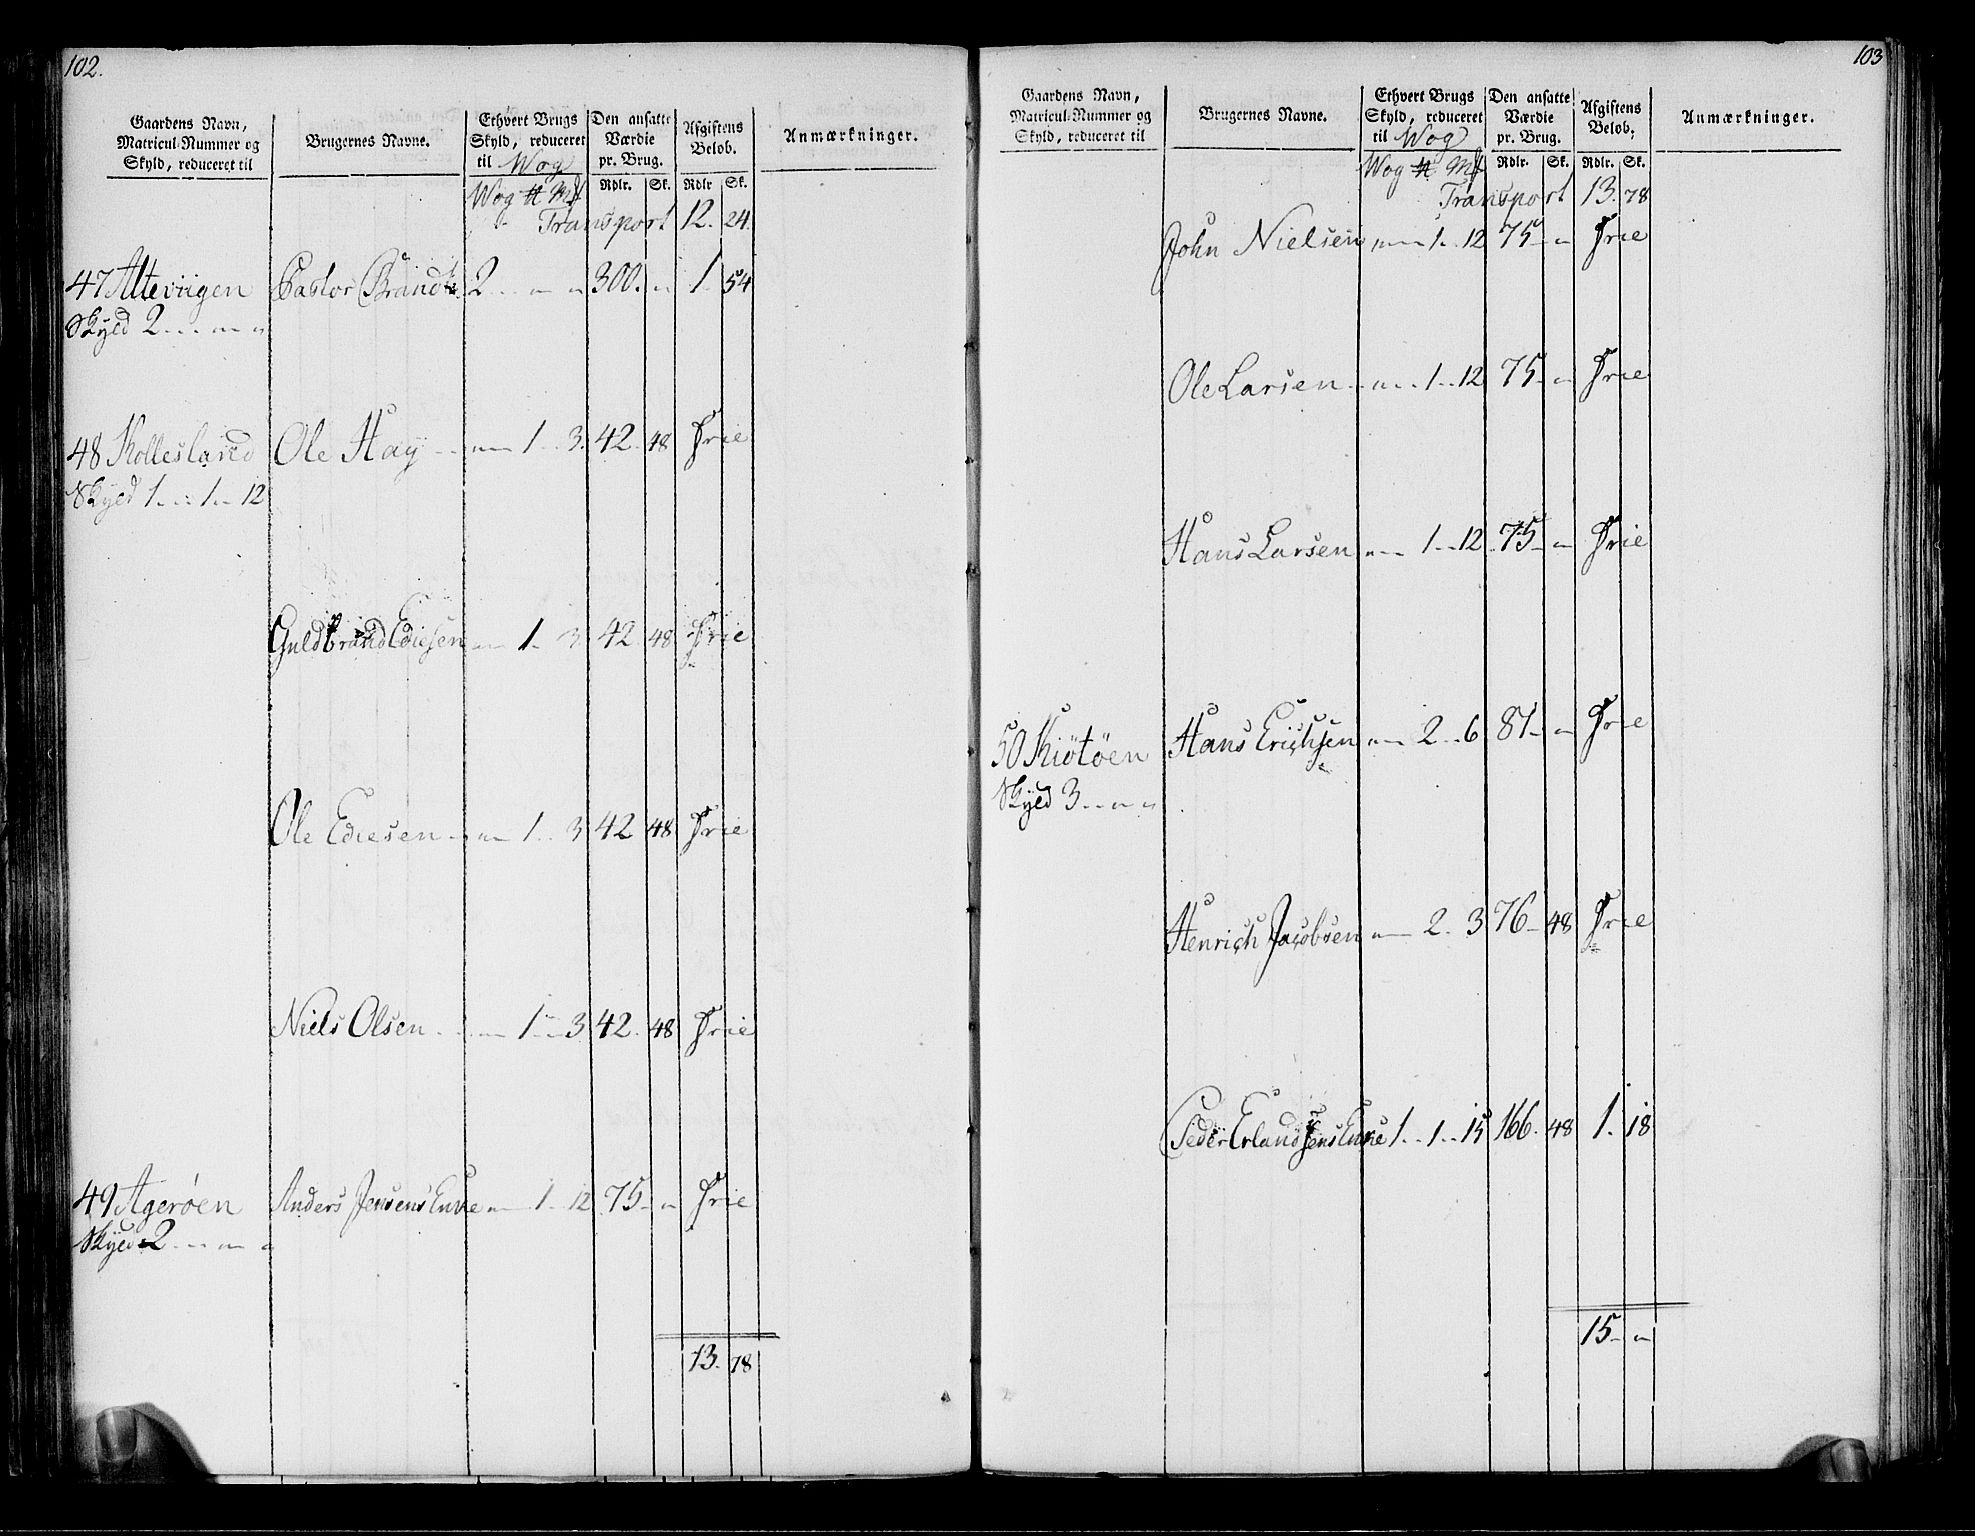 102.
Gaardens Navn, Matricul-Nummer og Skyld, reduceret til | Brugernes Navne. | Ethvert Brugs Skyld, reduceret til Wog | Den ansatte Værdie pr. Brug. | Afgiftens Beløb. | Anmærkninger.
Wog ℔ Mk | Rdlr. | Sk. | Rdlr | Sk.
Transport 12. 24
47 Altevugen Pastor Brandt 2 - - - 300. - 1. 54
Skyld 2 - - -
48 Kollesland Ole Hay - - 1. 3. 42. 48 Frie
Skyld 1 - 1 - 12
Guldbrand Ediesen - 1. 3 42. 48 Frie
Ole Ediesen - - 1. 3 42 48 Frie
Niels Olsen - - 1 - 3 42. 48 Frie
49 Agerøen Anders Jensens Enke - 1 - 12 75 - - Frie
Skyld 2 - - -
13. 78
103
Gaardens Navn, Matricul-Nummer og Skyld, reduceret til | Brugernes Navne. | Ethvert Brugs Skyld, reduceret til Wog | Den ansatte Værdie pr. Brug. | Afgiftens Beløb. | Anmærkninger.
Wog ℔ Mk | Rdlr. | Sk. | Rdlr. | Sk.
Transport 13. 78
John Nielsen - 1 - 12 75 - - Frie
Ole Larsen - - 1 - 12 75 - - Frie
Hans Larsen - - 1 - 12 75 - - Frie
50 Kiötöen Hans Erichsen - 2 - 6 81 - - Frie
Skyld 3 - - -
Henrich Jacobsen - 2. 3 76 - 48 Frie
Peder Erlandsens Enke 1 - 1 - 15 166. 48 1. 18
15 - -